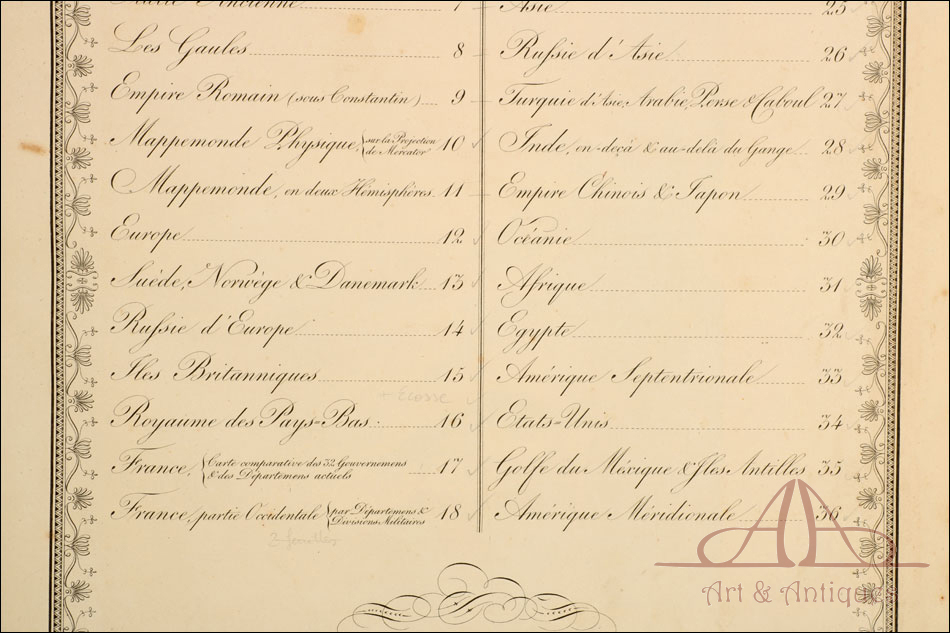 Italie Ancienne 7
Les Gaules 8
Empire Romain (sous Constantin) 9
Mappemonde Physique sur la Projection de Mercator 10
Mappemonde, en deux Hémisphères 11
Europe 12
Suéde, Norwége & Danemark 13
Russie d'Europe 14
Iles Britanniques 15
+ Ecosse
Royaume des Pays-Bas 16
France, Carte comparative des 32 Gouvernemens & des Départemens actuels 17
France, partie Occidentale par Départemens & Divisions Militaires 18
2 feuilles
Asie 25
Russie d'Asie 26
Turquie d'Asie, Arabie, Perse & Caboul 27
Inde, en-deçà & au-delà du Gange 28
Empire Chinois & Japon 29
Océanie 30
Afrique 31
Egypte 32
Amérique Septentrionale 33
Etats-Unis 34
Golfe du Méxique & Iles Antilles 35
Amérique Méridionale 36
Art & Antiques